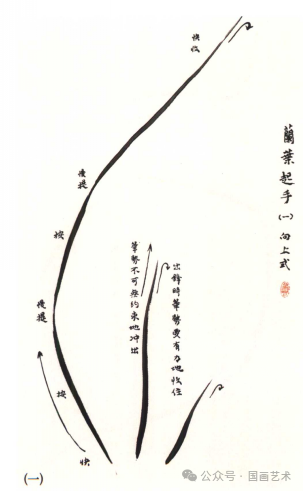 蘭葉起手(一)向上式
快收
慢提
按
慢提
按
快
出鋒時筆勢要有力地收住
筆勢不可無約束地冲出
(一)
公众号·国画艺术